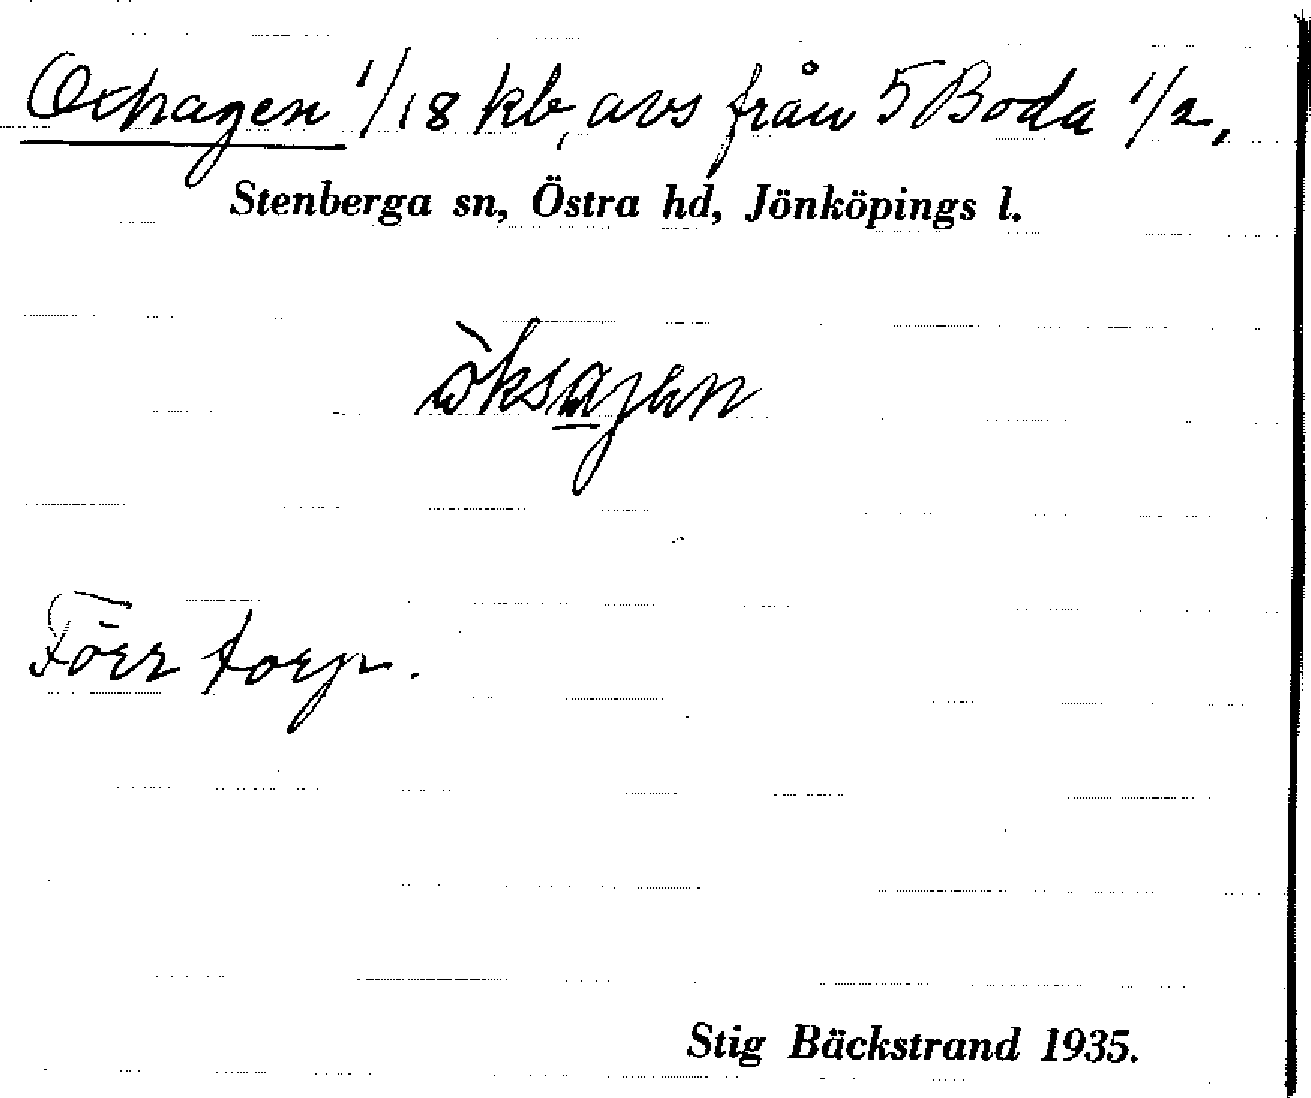 Oxhagen 1/18 kb, avs från 5 Boda 1/2,
Stenberga sn, Östra hd, Jönköpings l.
òksajen
Förr torp.
Stig Bäckstrand 1935.